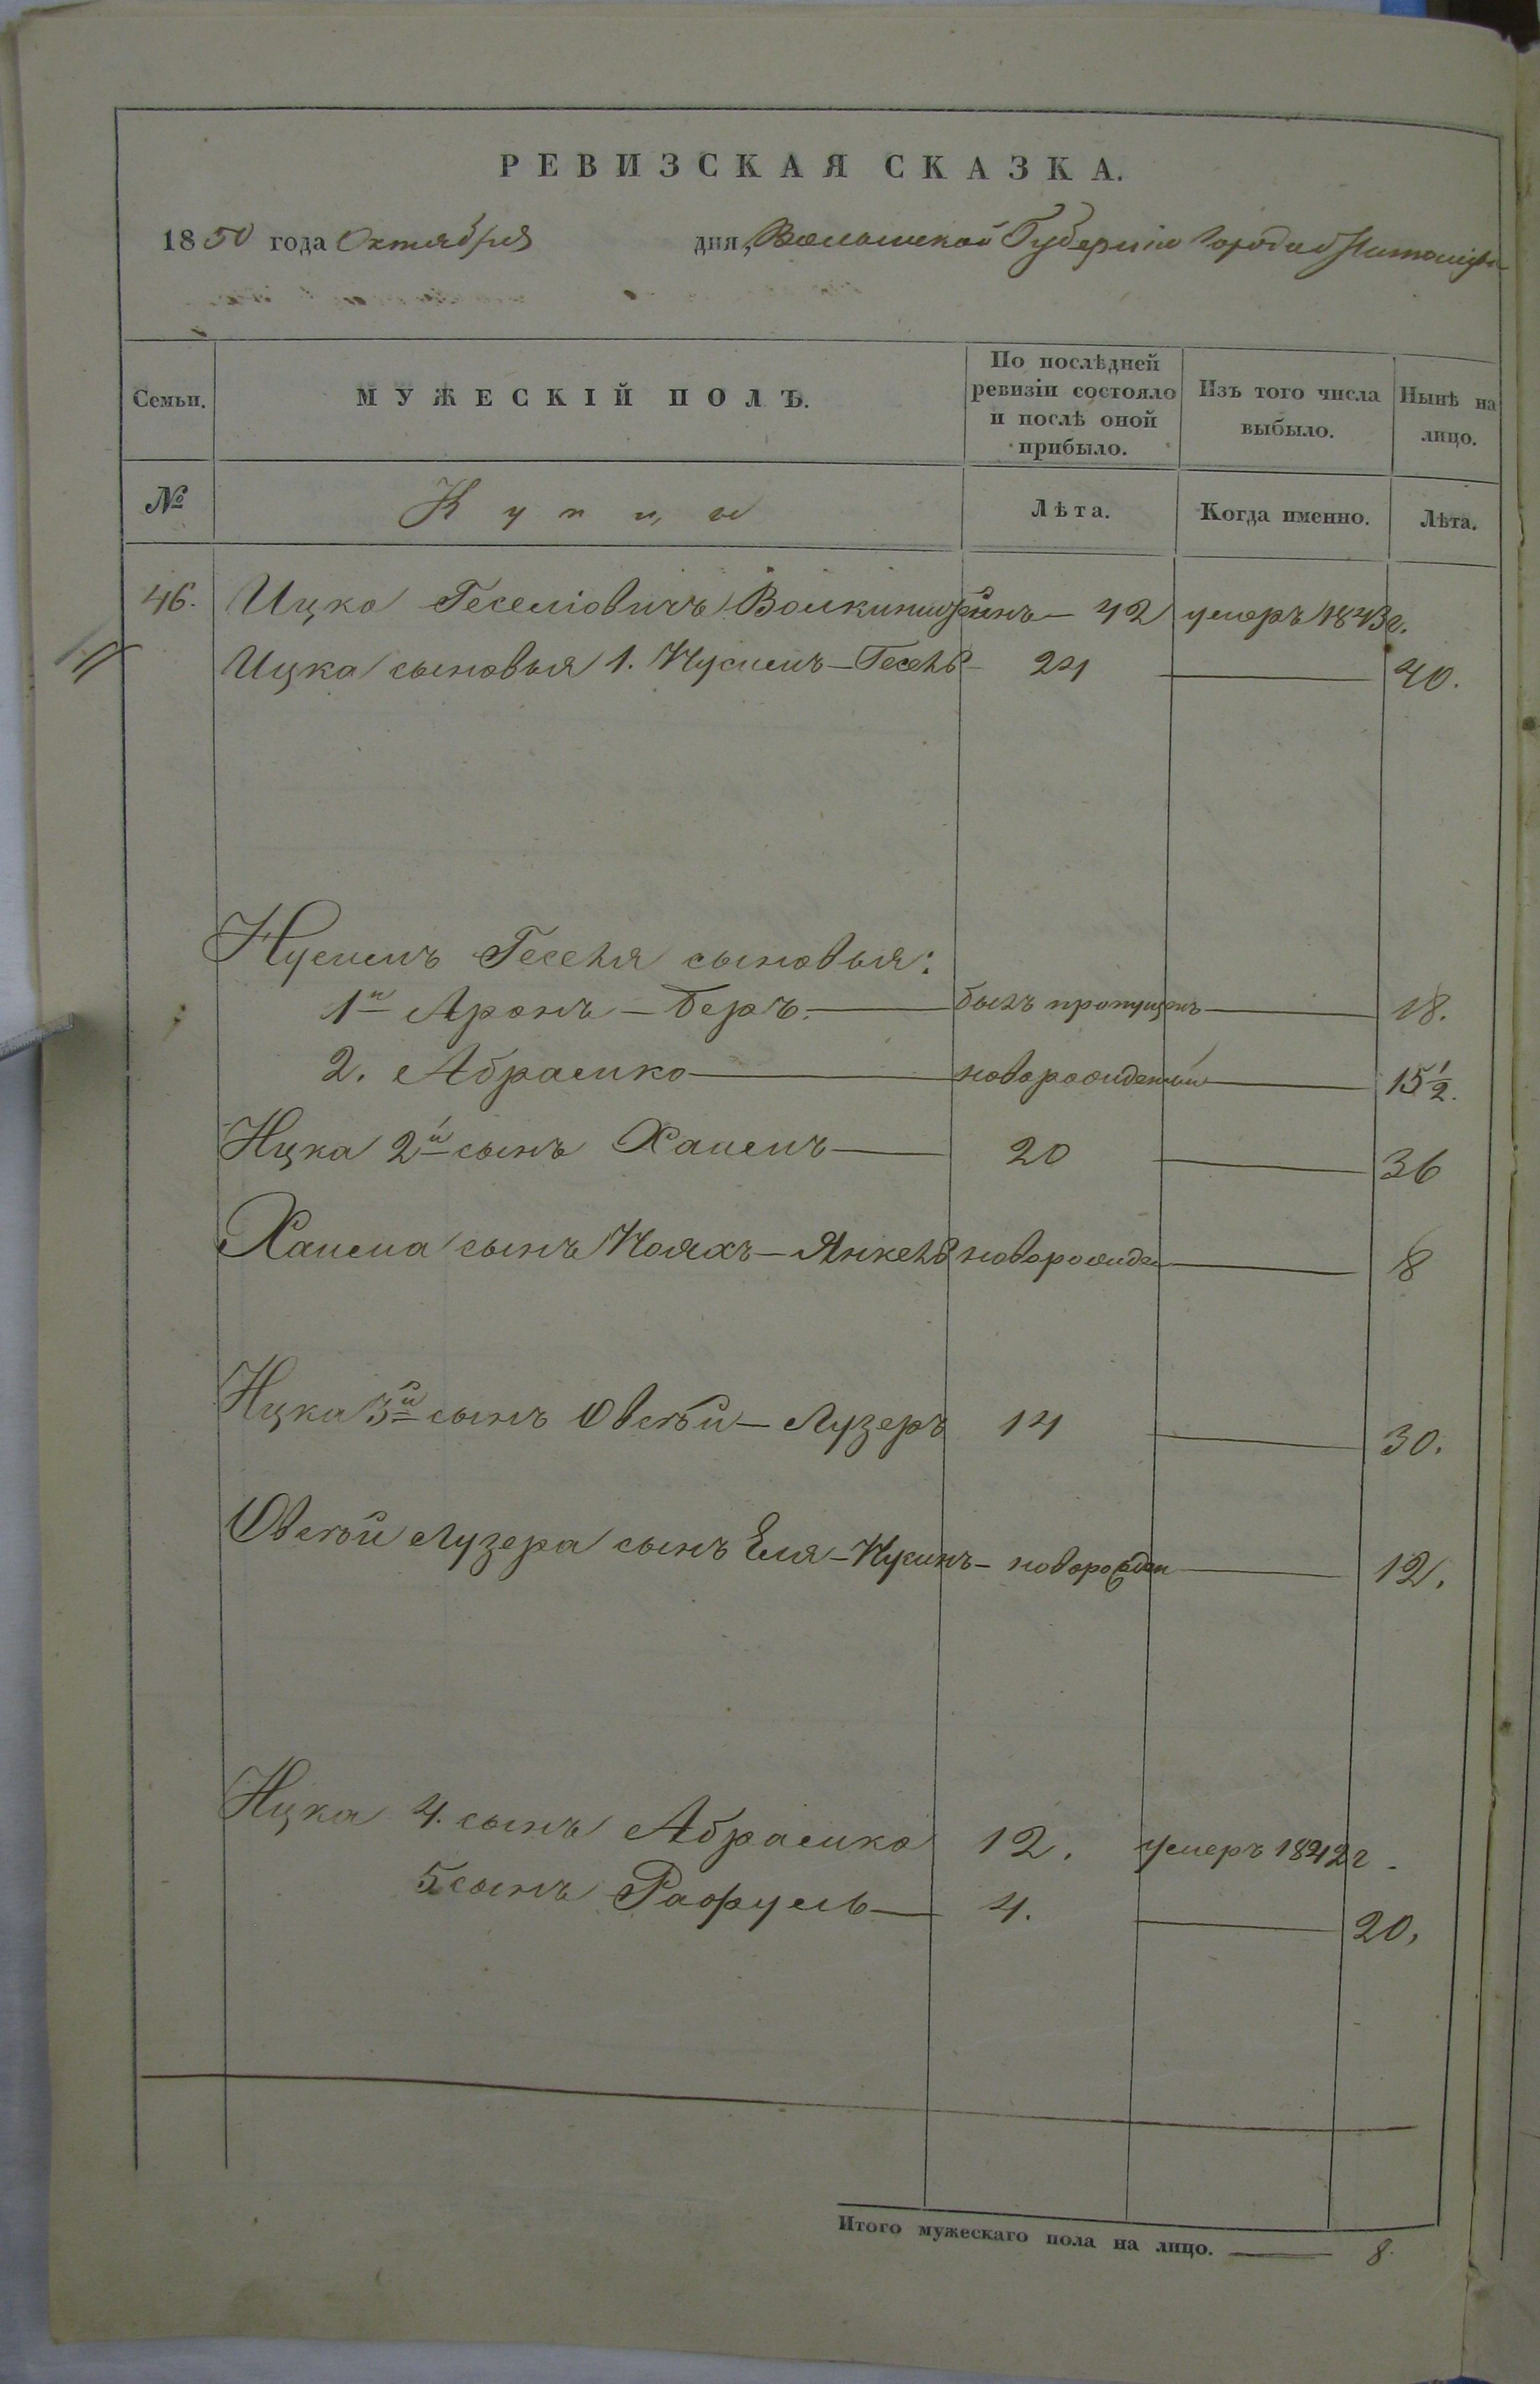 РЕВИЗСКАЯ СКАЗКА.
1850 года Октября дня, Волынской Губернии Города Житомира
Семьи. МУЖЕСКІЙ ПОЛЪ. По послѣдней ревизіи состояло и послѣ оной прибыло. Изъ того числа выбыло. Нынѣ на лицо.
№ Купцы Лѣта. Когда именно. Лѣта.
46. Ицко Геселіовичъ 42 умеръ 1843 г.
Ицка сыновья 1. Нусимъ-Гесель 24 — 40.
Нусимъ Геселя сыновья:
1й Аронъ-Беръ. — былъ пропущенъ — 18.
2. Абрамко — новорожденный — 15½.
Ицка 2й сынъ Хаимъ — 20 — 36
Хаима сынъ Ноях-Янкель новорожден — 8
Ицка 3й сынъ Овсѣй-Лузеръ 14 — 30.
Овсѣй Лузера сынъ Еля-Нусинъ - новорожден — 12.
Ицка 4. сынъ Абрамко 12. умеръ 1842 г.
5 сынъ Рафуель — 4. — 20,
Итого мужескаго пола на лицо. — 8.